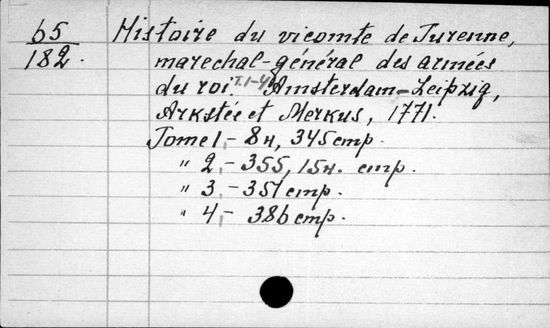 65 Histoire du vicomte de Turenne,
182. marechal-général des armées
du roi. T.1-4. Amsterdam-Leipzig,
Arkstée et Merkus, 1771.
Tome 1,- 8н, 345 стр.
" 2,- 355, 15н. стр.
" 3,- 351 стр.
" 4,- 386 стр.